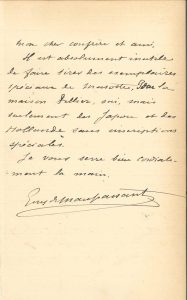 Mon cher confrère et ami,
Il est absolument inutile
de faire tirer des exemplaires
spéciaux de Musotte, Pour la
maison Tillier, oui, mais
seulement du Japon et du
Hollande sans inscriptions
spéciales.
Je vous serre bien cordiale-
ment la main.
Guy de Maupassant